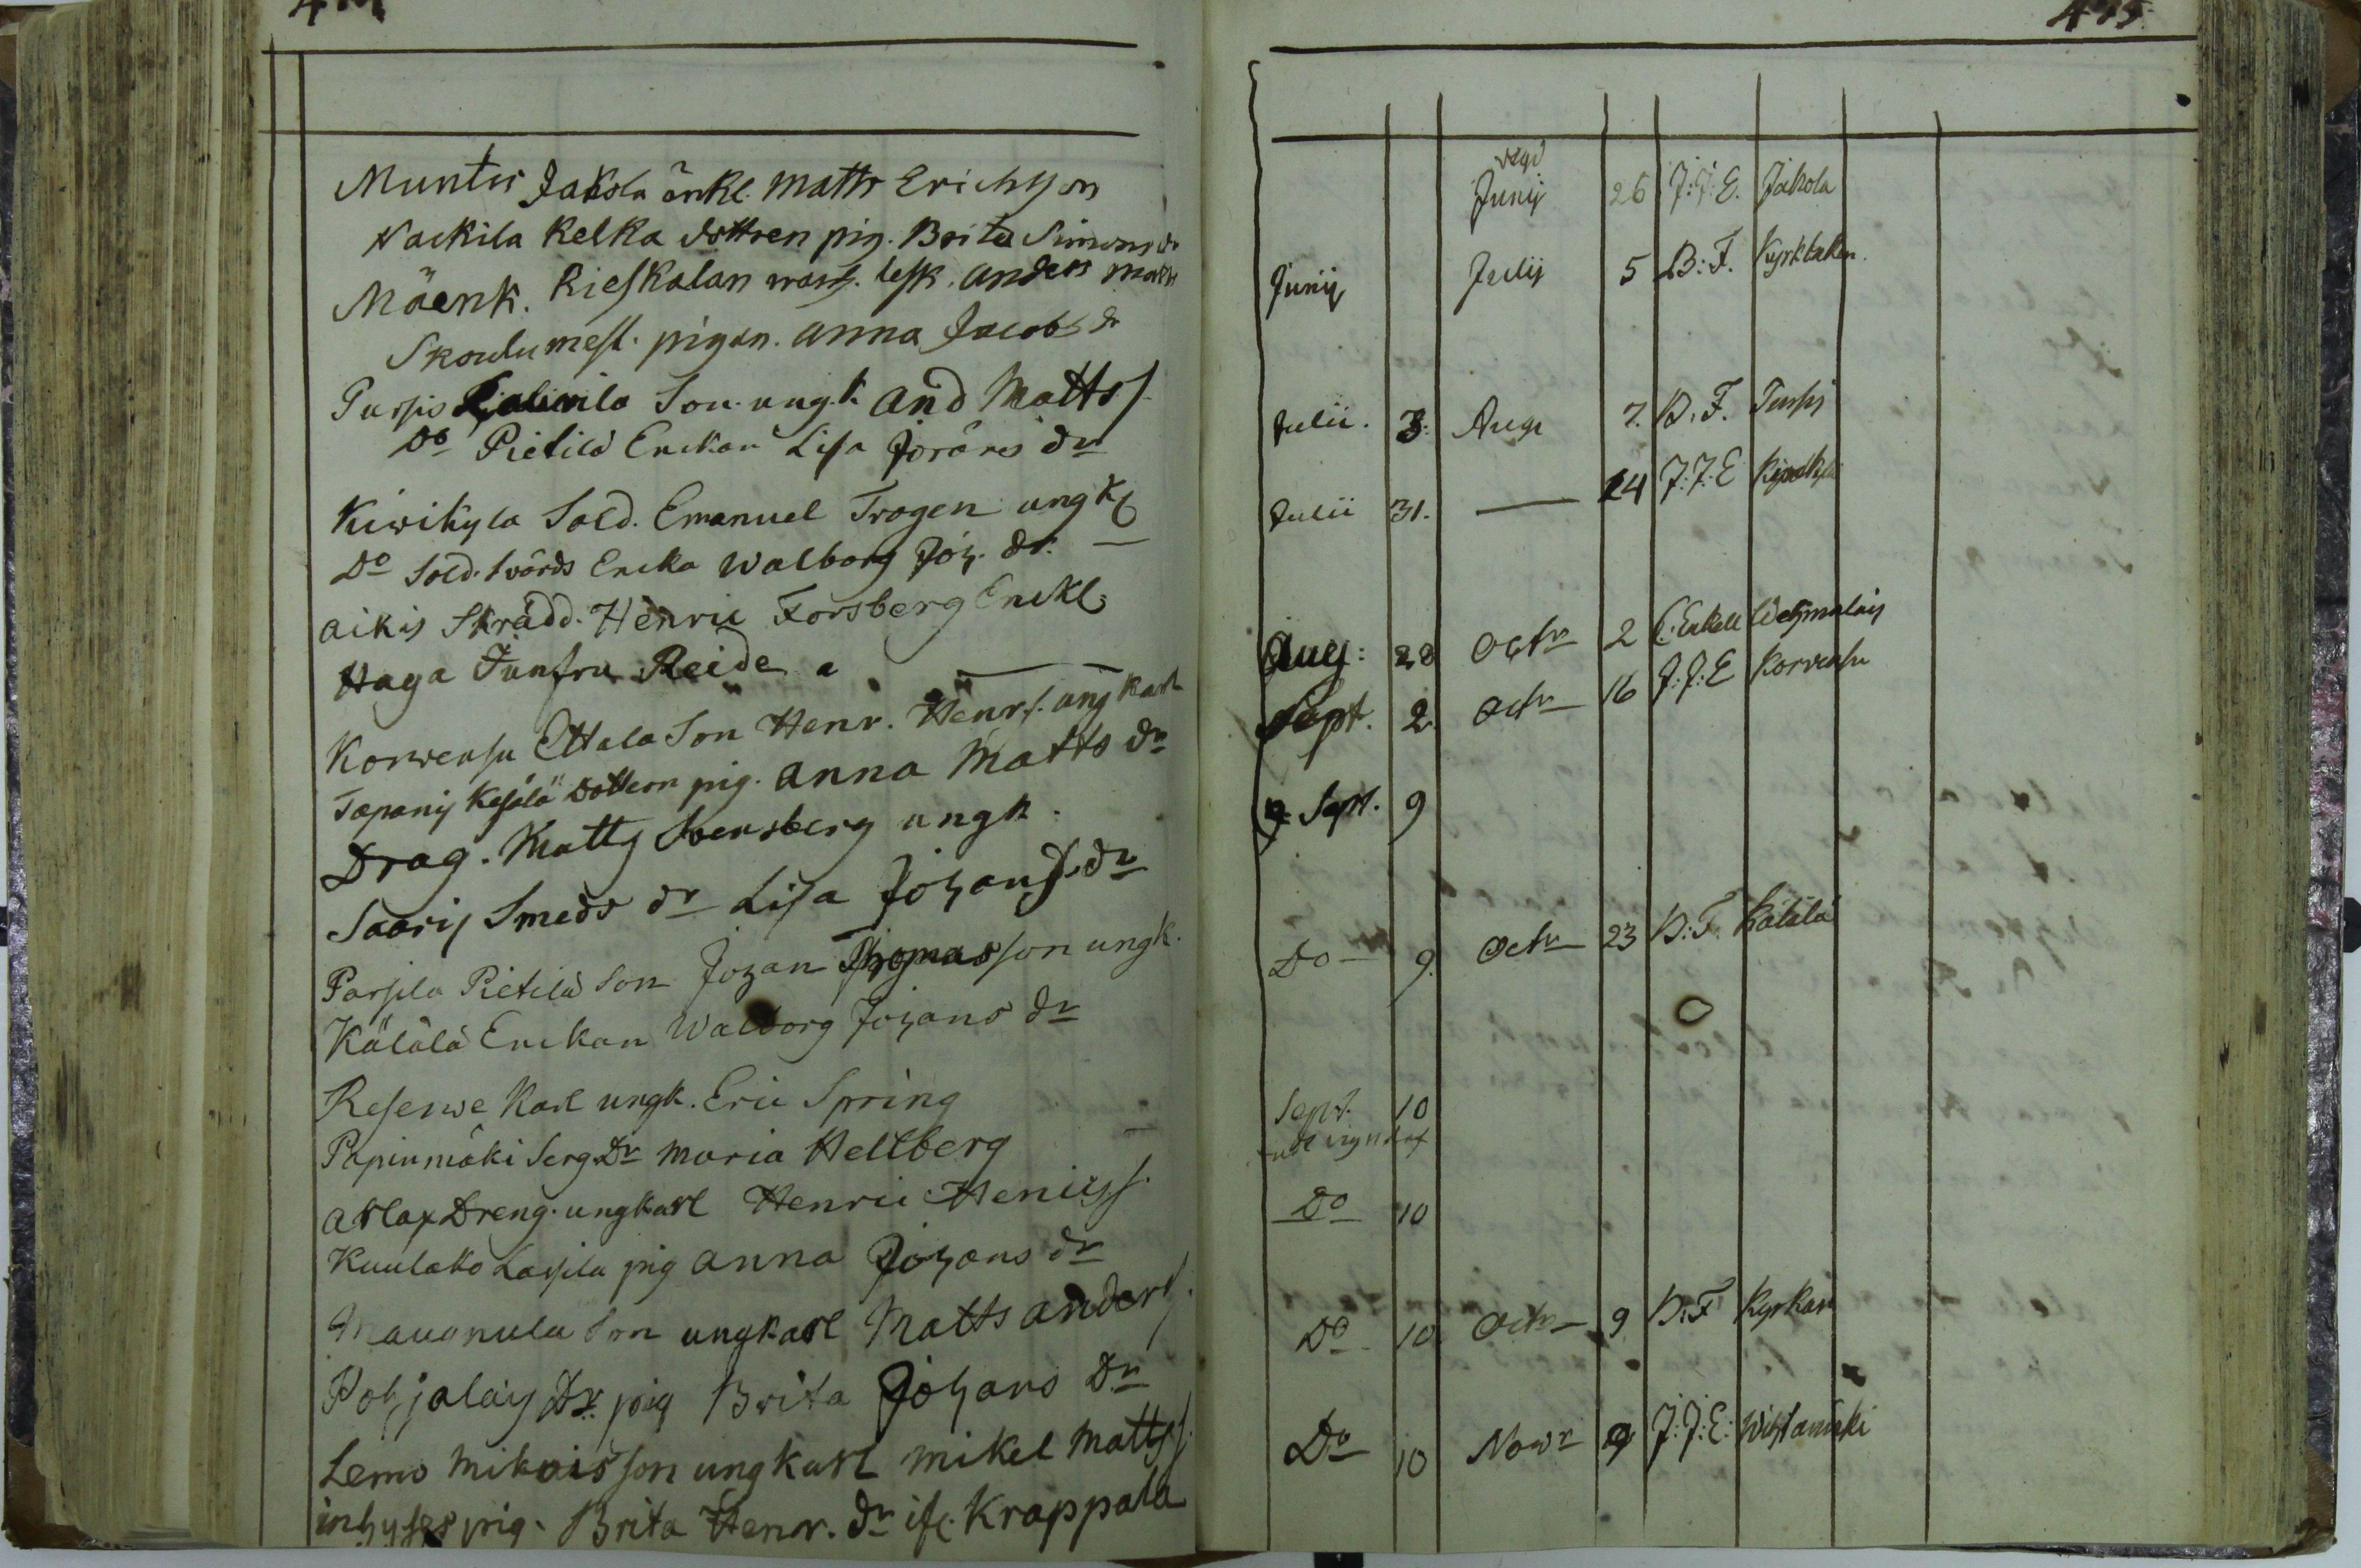 415.
Muntis Jakola änkl. Matts Erichson
Nackila Kelka dottren pig. Brita Simons dr
Mäenk. Rieskalan
Skoulumest. pigan. Anna Jacobs dr
Pursis Son ungk. And Mattss.
Do Pietilä Enckan Lisa Jörans dr
Kiwikyla Sold. Emanuel Trogen ungk
Do Sold. Svärds Encka Walborg Joh. dr. —
Aikis Skrädd. Henric Forsberg Enckl.
Haga Junfru Reide
Korvensu Ettala Son Henr. Henrs. ungkarl
Tapanij Kesälä Dottern pig. Anna Matts dr
Drag. Matts Svensberg ungk.
Saaris Smeds dr Lisa Johans dr
Parsila Pietilä Son Johan Thomasson ungk.
Kälälä Enckan Walborg Johans dr
Reserve Karl ungk. Eric Spring
Papinmäki Serg. Dr Maria Hellberg
Arlax Dreng. ungkarl Henric Henicss.
Kuulako Lassila pig Anna Johans dr
Maununula Son ungkarl Matts Anders.
Pohjalais Dr. pig Brita Johans Dr
Lemo Mikois son ungkarl Mikel Mattss.
inhyses pig. Brita Henr. dr if. Krappala
Junij 26 J:J:E. Jakola
Junij Julij 5 B:F. Kyrkbaken.
Julii. 3. Aug 7. B.F. Pursis
Julii 31. — 14 J:J:E
Aug: 28 Octr 2 C. Enkell Wehmalais
Sept. 2 Octr 16 J:J:E Korvensu
Sept. 9
Do 9. Octr 23 B:F. Kälälä
Sept. 10
Do 10
Do 10 Octr 9 B.F Kyrkan
Do 10 Novr 9 J:J:E: Wihtamäki